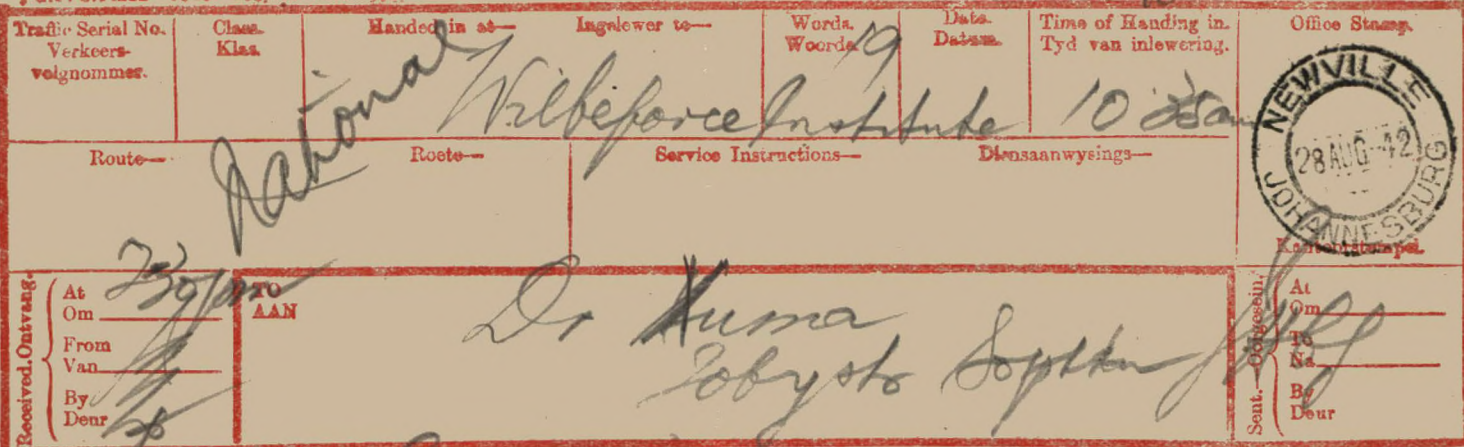 Traffic Serial No.
Verkeers-
volgnommer.
Class.
Klas.
Handed in at— Ingelewer te—
Words.
Woorde.
19
Date.
Datum.
Time of Handing in.
Tyd van inlewering.
Office Stamp.
National
Wilbeforce Institute
10
NEWVILLE
28 AUG 42
JOHANNESBURG
Kantoorstempel.
Route— Roete—
Service Instructions— Diensaanwysings—
Received. Ontvang.
At
Om
From
Van
By
Deur
TO
AAN
Dr Xuma
Toby str Sophtn JHBg
Sent.—Oorgesein.
At
Om
To
Na
By
Deur